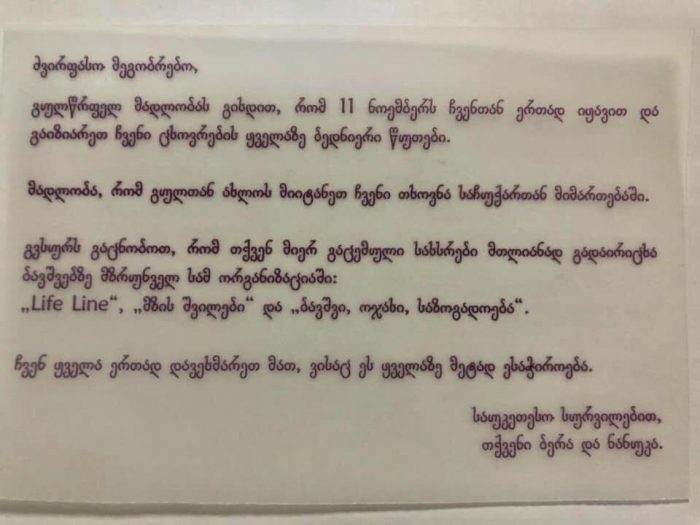 ძვირფასო მეგობრებო,
გულწრფელ მადლობას გიხდით, რომ 11 ნოემბერს ჩვენთან ერთად იყავით და
გაიზიარეთ ჩვენი ცხოვრების ყველაზე ბედნიერი წუთები.
მადლობა, რომ გულთან ახლოს მიიტანეთ ჩვენი თხოვნა საჩუქართან მიმართებაში.
გვსურს გაცნობოთ, რომ თქვენ მიერ გაცემული სახსრები მთლიანად გადაირიცხა
ბავშვებზე მზრუნველ სამ ორგანიზაციაში:
„Life Line“, „მზის შვილები“ და „ბავშვი, ოჯახი, საზოგადოება“.
ჩვენ ყველა ერთად დავეხმარეთ მათ, ვისაც ეს ყველაზე მეტად ესაჭიროება.
საუკეთესო სურვილებით,
თქვენი ბერა და ნანუკა.